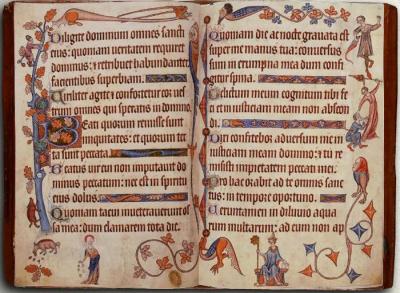 Diligite dominum omnes sancti
eius: quoniam ueritatem requiret
dominus: et retribuet habundanter
facientibus superbiam.
Uiriliter agite et confortetur cor ues
trum: omnes qui speratis in domino.
Beati quorum remisse sunt
iniquitates: et quorum tec
ta sunt peccata.
Beatus uir cui non imputauit do
minus peccatum: nec est in spiritu
eius dolus.
Quoniam tacui inueterauerunt os
sa mea: dum clamarem tota die.
Quoniam die ac nocte grauata est
super me manus tua: conuersus
sum in erumpna mea dum confi
gitur spina.
Delictum meum cognitum tibi fe
ci: et iusticiam meam non abscon
di.
Dixi confitebor aduersum me in
iusticiam meam domino: et tu re
misisti impietatem peccati mei.
Pro hac orabit ad te omnis sanc
tus: in tempore oportuno.
Ueruntamen in diluuio aqua
rum multarum: ad eum non ap